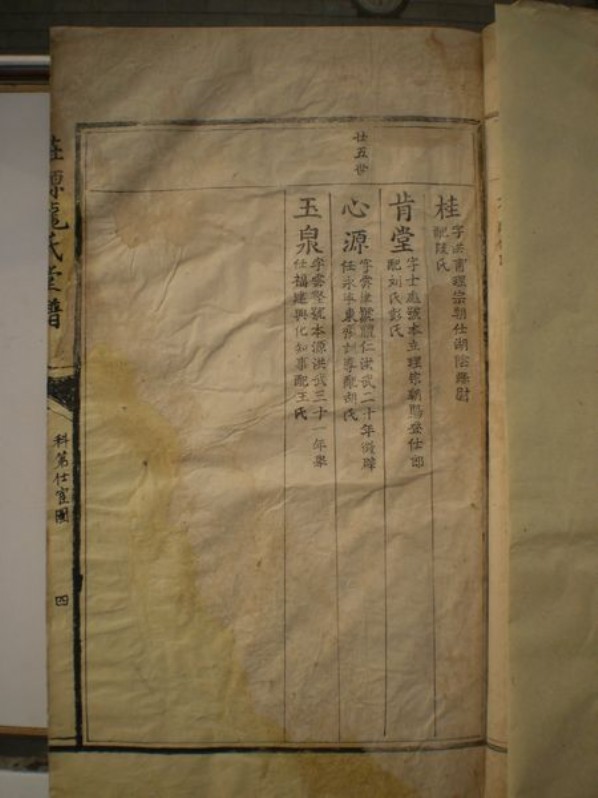 桂
字洪甫理宗朝仕湖陰縣尉
配陵氏
肯堂
字士處號本立理宗朝賜登仕郎
配刘氏彭氏
廿五世
心源
字雲津號體仁洪武二十年徵辟
任永寧東鄉訓導配胡氏
玉泉
字雲堅號本源洪武三十一年舉
仕福建興化知事配王氏
源龍氏坣譜
科第仕宦圖
四